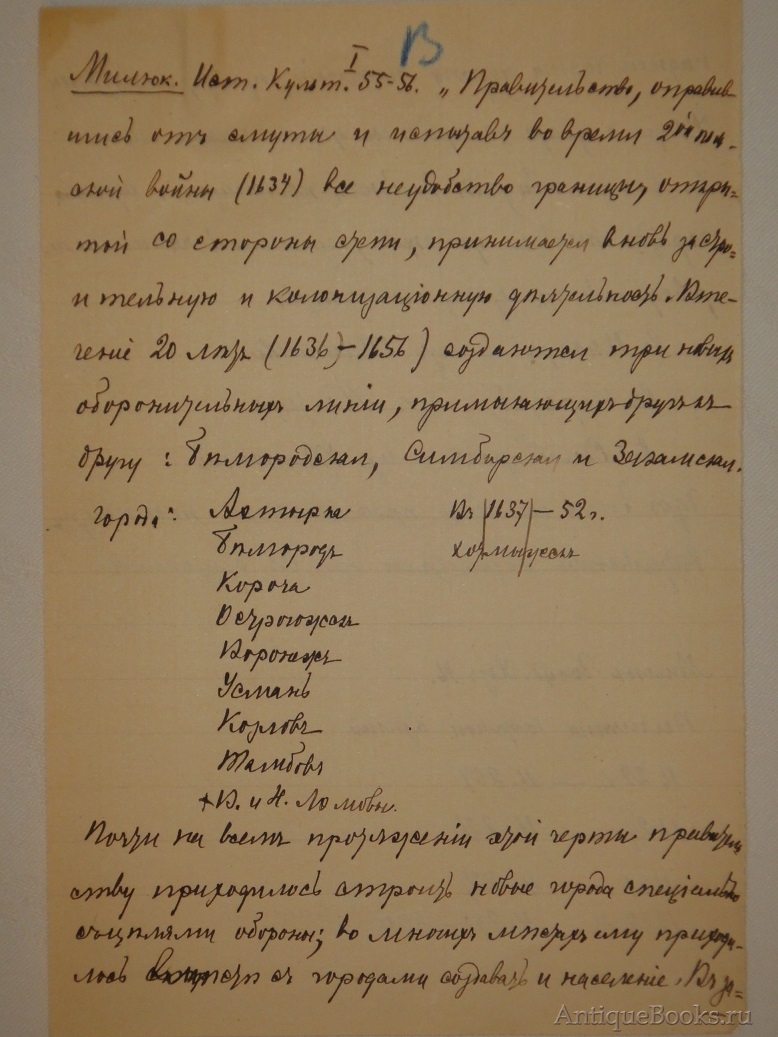 В
I
Милюк. Ист. Культ. 55-56. „Правительство, оправив
шись отъ смуты и испытавъ во время 2ой поль-
ской войны (1634) все неудобство границы, откры-
той со стороны степи, принимается вновь за строи-
ительную и колонизаціонную дѣятельность. Въ те-
ченіе 20 лѣтъ (1636–1656) создаются три новыхъ
оборонительныхъ линіи, примыкающихъ другъ къ
другу: Бѣлгородская, Симбирская и Закамская.
города: Ахтырка Въ 1637–52г.
Бѣлгородъ хотмыжскъ
Короча
Острогожскъ
Воронежъ
Усмань
Козловъ
Тамбовъ
+ В. и Н. Ломовы.
Почти на всемъ протяженіи этой черты правитель
ству приходилось строить новые города спеціально
съ цѣлями обороны; во многихъ мѣстахъ ему приходи-
лось вмѣстѣ съ городами создавать и населеніе. Въ за=
AntiqueBooks.ru